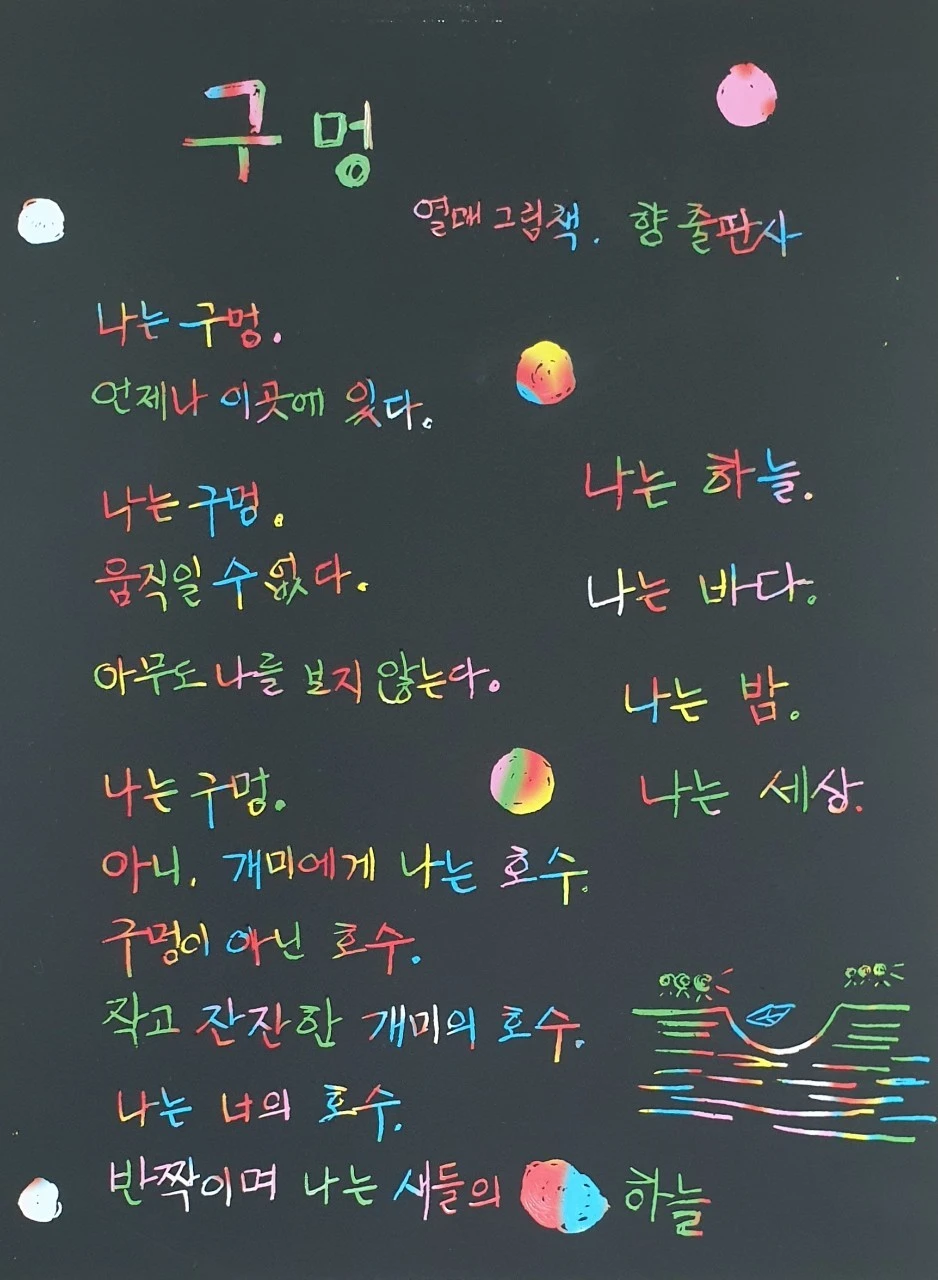 구멍
열매 그림책. 향 출판사
나는 구멍.
언제나 이곳에 있다.
나는 구멍.
움직일 수 없다.
아무도 나를 보지 않는다.
나는 구멍.
아니, 개미에게 나는 호수.
구멍이 아닌 호수.
작고 잔잔한 개미의 호수.
나는 너의 호수.
반짝이며 나는 새들의 하늘
나는 하늘.
나는 바다.
나는 밤.
나는 세상.